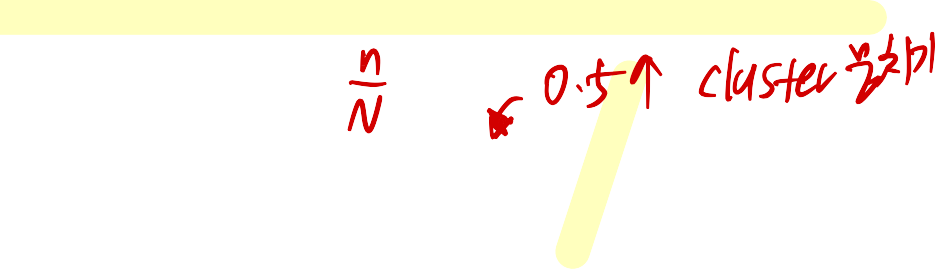 n
N
0.5↑ cluster 뭉치기